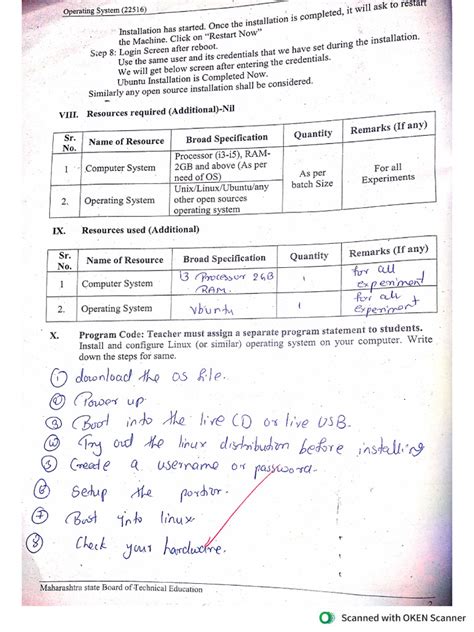 Operating System (22516)
Installation has started. Once the installation is completed, it will ask to restart
the Machine. Click on "Restart Now"
Step 8: Login Screen after reboot.
Use the same user and its credentials that we have set during the installation.
We will get below screen after entering the credentials.
Ubuntu Installation is Completed Now.
Similarly any open source installation shall be considered.
VIII. Resources required (Additional)-Nil
Sr. No. Name of Resource Broad Specification Quantity Remarks (If any)
1 Computer System Processor (i3-i5), RAM-2GB and above (As per need of OS) As per batch Size For all Experiments
2. Operating System Unix/Linux/Ubuntu/any other open sources operating system
IX. Resources used (Additional)
Sr. No. Name of Resource Broad Specification Quantity Remarks (If any)
1 Computer System i3 Processor 2GB RAM. 1 for all experiment
2. Operating System Ubuntu 1 for all experiment
X. Program Code: Teacher must assign a separate program statement to students.
Install and configure Linux (or similar) operating system on your computer. Write
down the steps for same.
① download the OS file.
② Power up
③ Boot into the live CD or live USB.
④ Try out the linux distribution before installing
⑤ Create a username or password.
⑥ Setup the
⑦ Boot into linux.
⑧ Check your hardware.
Maharashtra state Board of Technical Education
Scanned with OKEN Scanner